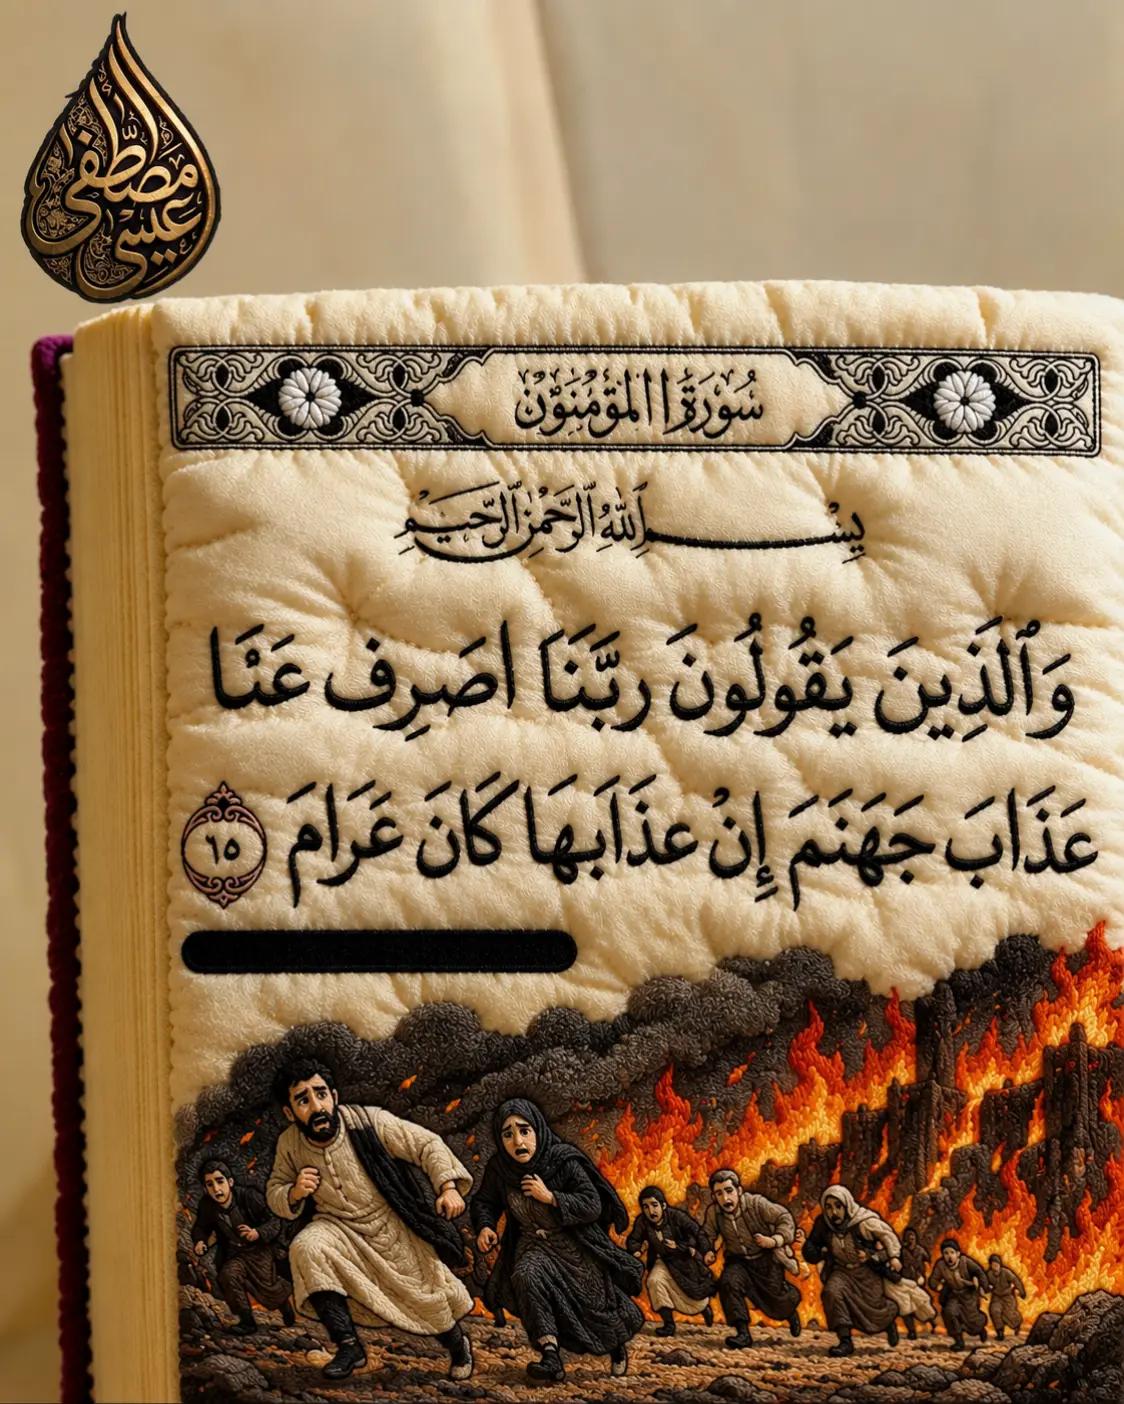 مصطفى
عيسى
سُورَةُ االمُؤْمِنُوْنَ
بِسْمِ اللَّهِ الرَّحْمٰنِ الرَّحِيمِ
وَٱلَّذِينَ يَقُولُونَ رَبَّنَا اصَرِف عَنَّا
عَذَابَ جَهَنَمَ إِنْ عذَابها كَانَ غَرَامَ ٦٥